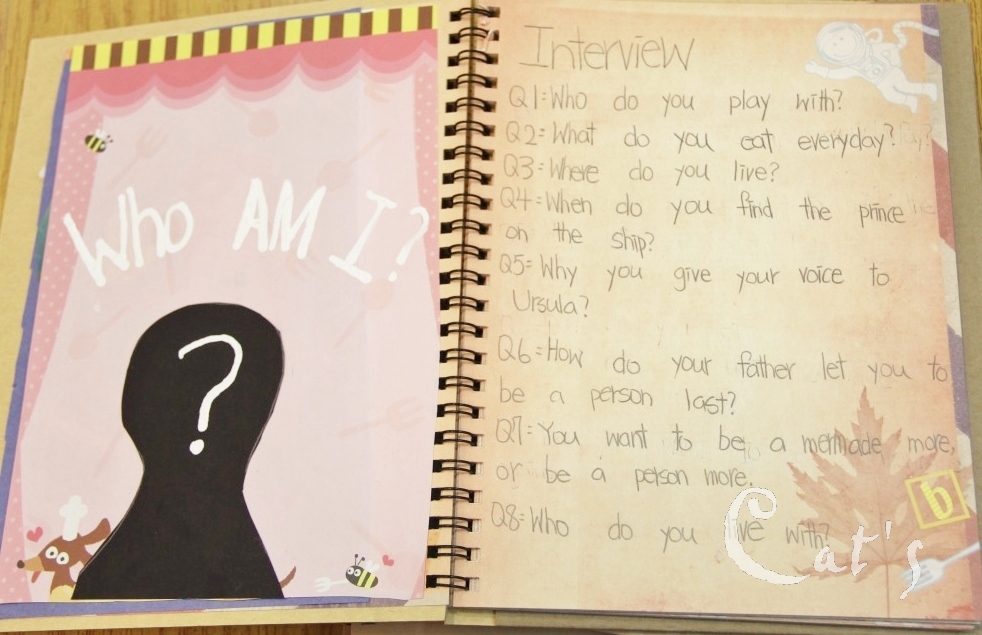 Who AM I?
?
Interview
Q1=Who do you play with?
Q2=What do you eat everyday?
Q3=Where do you live?
Q4=When do you find the prince
on the ship?
Q5=Why you give your voice to
Ursula?
Q6=How do your father let you to
be a person last?
Q7=You want to be a mermade more,
or be a person more.
Q8=Who do you live with?
b
Cat's